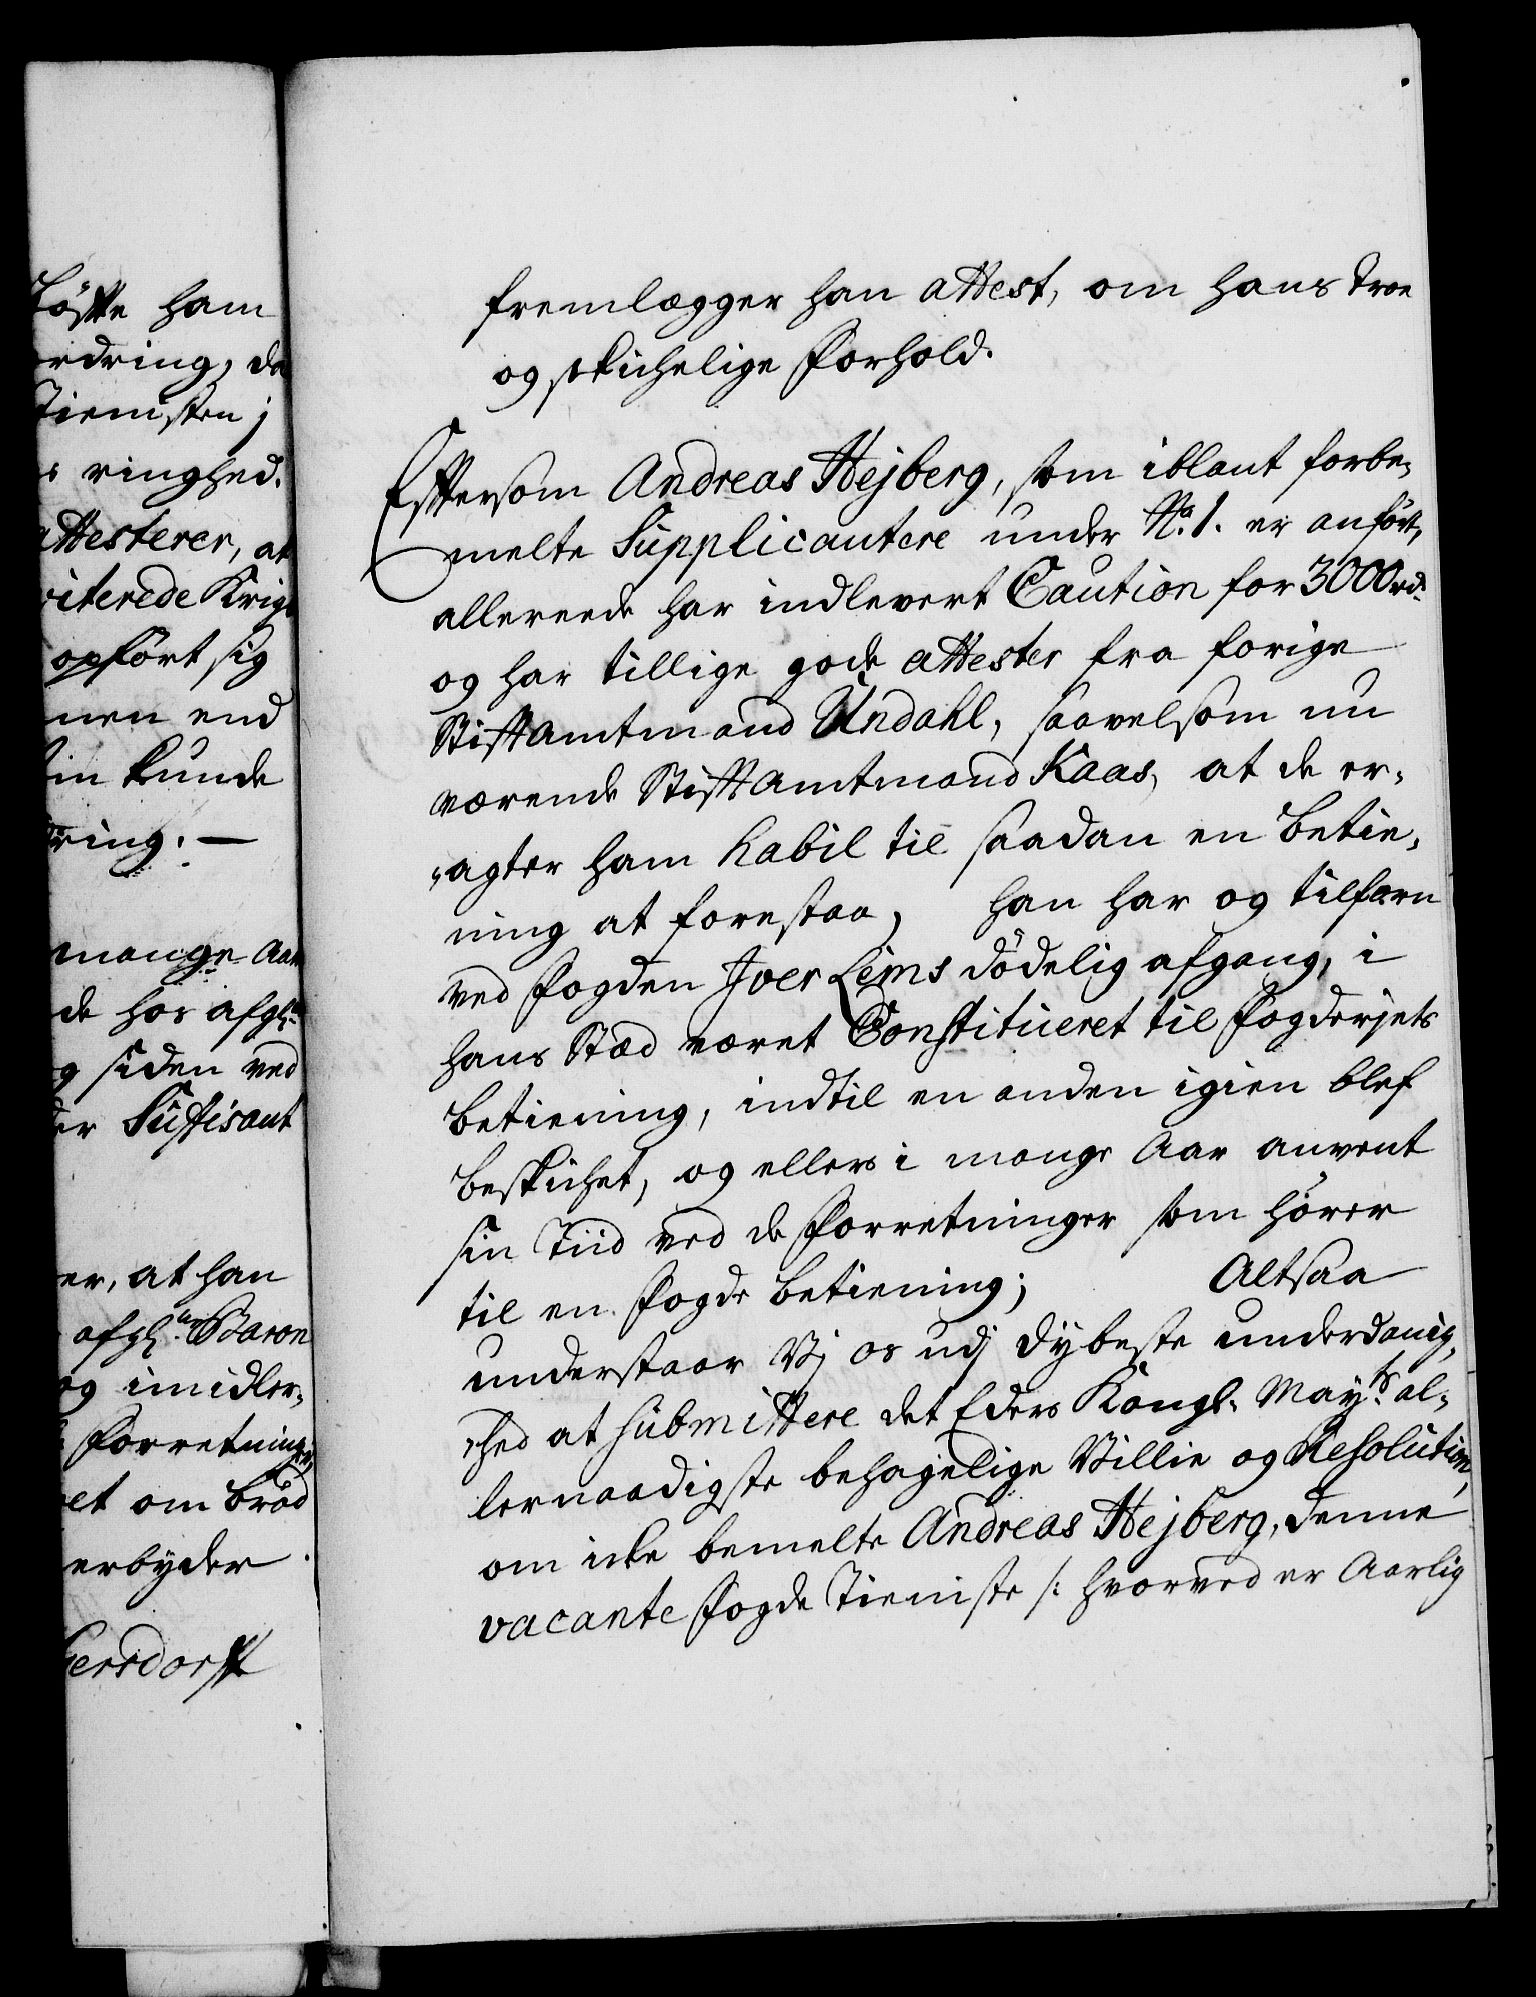 løfte ham
ordring, da
Tienisten j
s ringhed.
attesterer, at
iterede Krigs
opført sig
men end
in kunde
ring. —
mange Aar
de hos afgl:
g siden ved
er Suffisant
er, at han
afgl:ne Baron
og imidler-
Forretninger,
et om brød
erbyder
Gersdorff
fremlægger han attest, om hans troe
og skichelige Forhold.
Efftersom Andreas Hejberg, som iblant forbe-
melte Supplicantere under No. 1. er anført,
allereede har indlevert Caution for 3000 rd.
og har tillige gode attester fra forige
Stifftamtmand Undahl, saavelsom nu
værende Stifftamtmand Kaas, at de er-
agter ham habil til saadan en betie-
ning at forestaa, han har og tilforn
ved Fogden Iver Leims dødelig afgang, i
hans Stæd været Constitueret til Fogderjets
betiening, indtil en anden igien blef
beskichet, og ellers i mange Aar anvent
sin Tiid ved de Forretninger som hører
til en Fogde betiening; Altsaa
understaar Vj os udj dybeste underdanig-
hed at submittere det Eders Kongl. Mayts. al-
lernaadigste behagelige Villie og Resolution,
om icke bemelte Andreas Hejberg, denne
vacante Fogde Tieniste /: hvorved er Aarlig